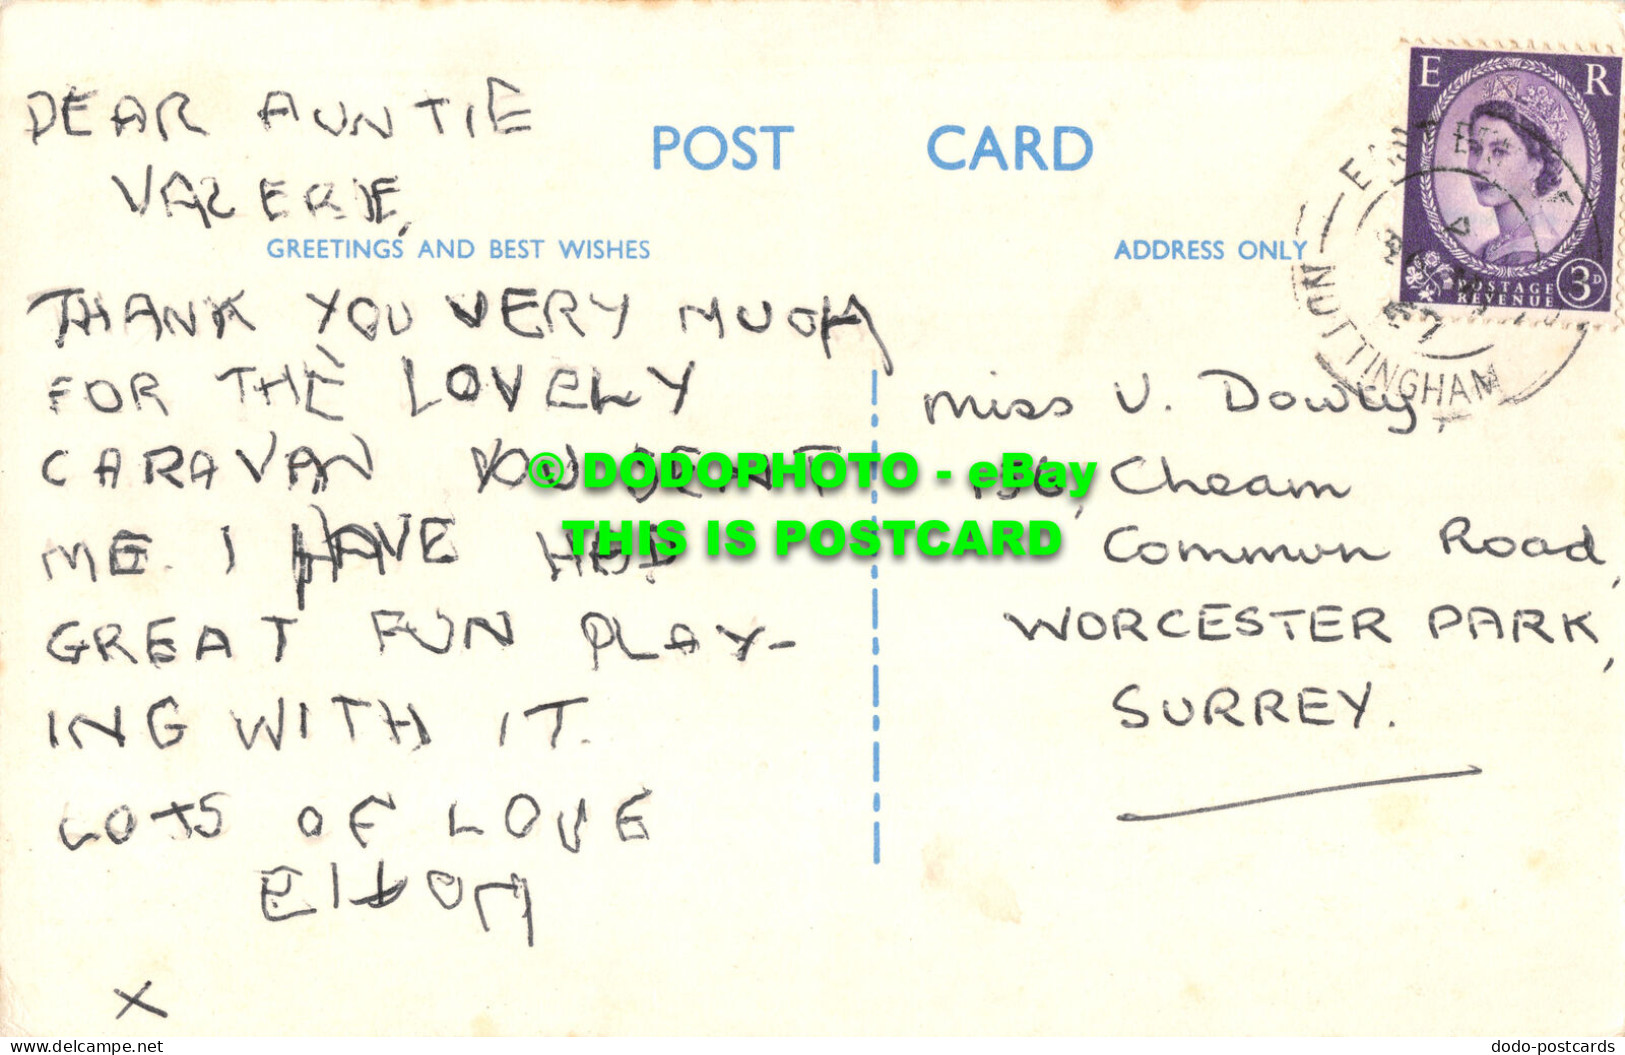 POST CARD
GREETINGS AND BEST WISHES
ADDRESS ONLY
DEAR AUNTIE
VALERIE,
THANK YOU VERY MUCH
FOR THE LOVELY
CARAVAN YOU SENT
ME. I HAVE HAD
GREAT FUN PLAY-
ING WITH IT.
LOTS OF LOVE
X
Miss V. Dowty,
Cheam
Common Road,
WORCESTER PARK,
SURREY.
E R
POSTAGE
REVENUE
3D
NOTTINGHAM
© DODOPHOTO - eBay
THIS IS POSTCARD
www.delcampe.net
dodo-postcards